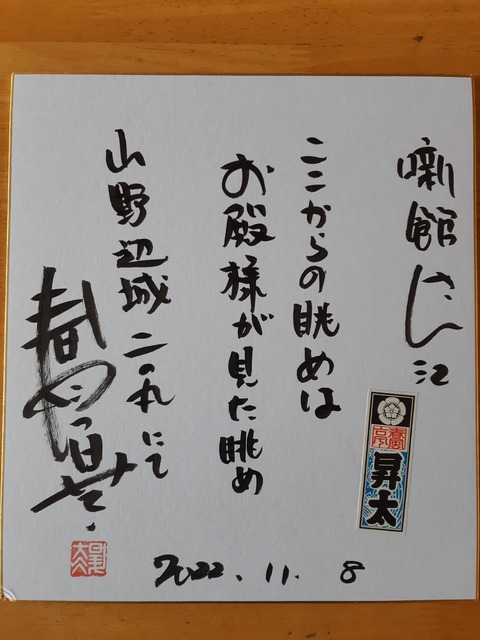 噺館さん江
ここからの眺めは
お殿様が見た眺め
山野辺城二の丸にて
春風亭昇太
昇太
2022.11.8
昇太